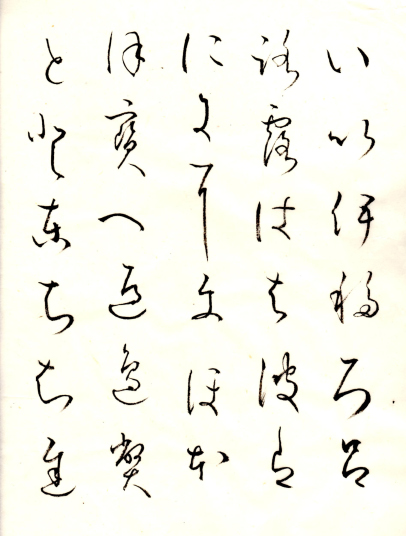 い以伊移ろ呂
路露は者波
に尓耳ほ本
保寶へ遍邊弊
と登東ち知遅